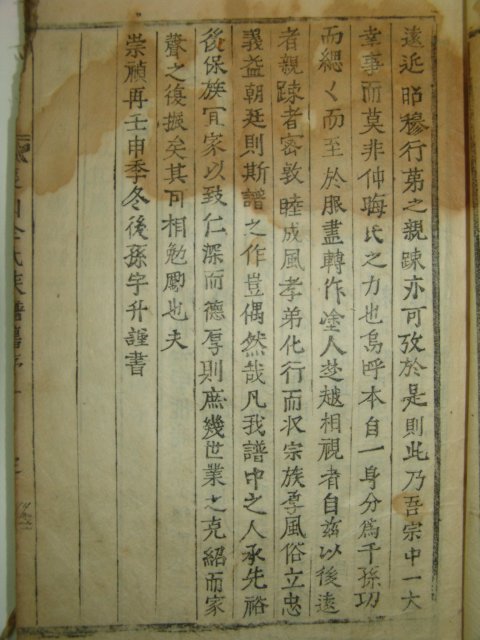 遠近昭穆行第之親踈亦可攷於是則此乃吾宗中一大
幸事而莫非仲晦氏之力也烏呼本自一身分爲千孫功
而緦〻而至於服盡轉作塗人楚越相視者自玆以後遠
者親踈者密敦睦成風孝弟化行而収宗族厚風俗立忠
義益朝廷則斯譜之作豈偶然哉凡我譜中之人承先裕
後保族冝家以致仁深而德厚則庶幾世業之克紹而家
聲之復振矣其可相勉勵也夫
崇禎再壬申季冬後孫宇升謹書
氏族譜舊序